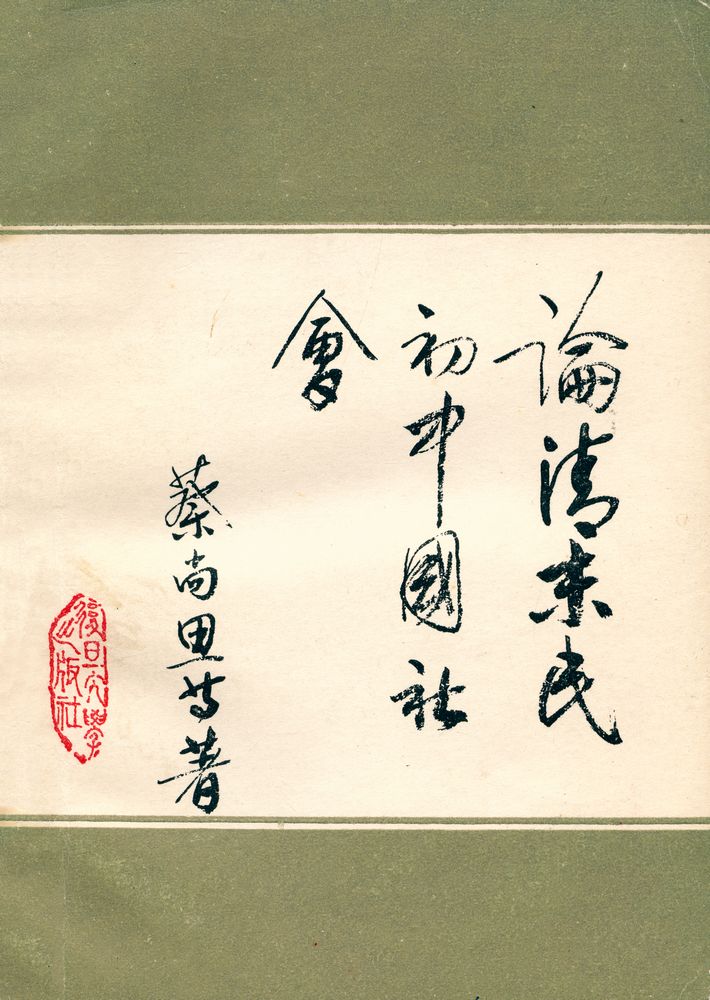 論清末民
初中國社
會
蔡尚思等著
復旦大學
出版社